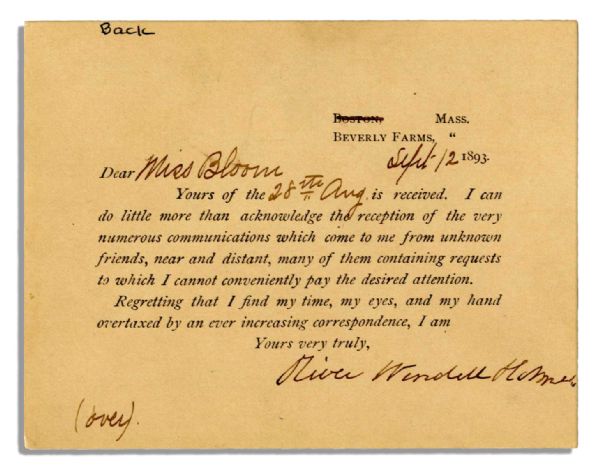 Back
Boston, Mass.
Beverly Farms, "
Sept 12 1893.
Dear Miss Bloom
Yours of the 28th Aug. is received. I can
do little more than acknowledge the reception of the very
numerous communications which come to me from unknown
friends, near and distant, many of them containing requests
to which I cannot conveniently pay the desired attention.
Regretting that I find my time, my eyes, and my hand
overtaxed by an ever increasing correspondence, I am
Yours very truly,
Oliver Wendell Holmes
(over).